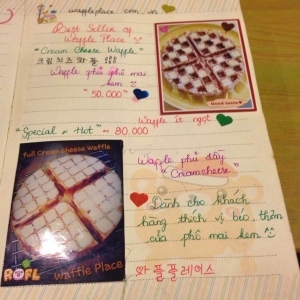 waffleplace . com . vn
Best Seller of
Waffle Place !!
"Cream Cheese Waffle"
크림 치즈 와플
Waffle phủ phô mai
kem
"50.000"
Good taste
Waffle ít ngọt
"Special & Hot" = 80.000
full Cream cheese Waffle
Waffle phủ đầy
"Creamcheese"
Dành cho khách
hàng thích vị béo, thơm
của phô mai kem
ROFL
Waffle Place
와플플레이스